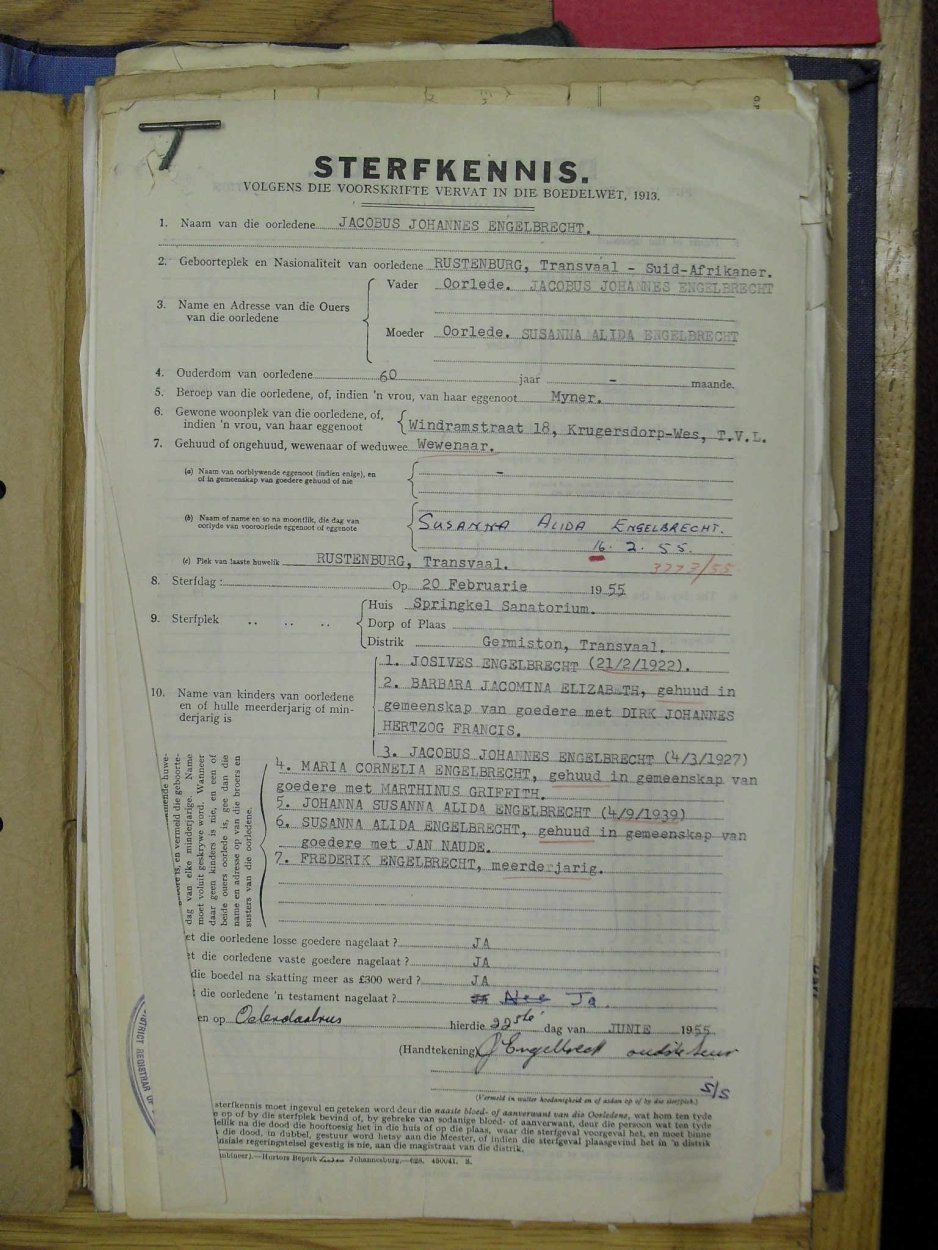 STERFKENNIS.
VOLGENS DIE VOORSKRIFTE VERVAT IN DIE BOEDELWET, 1913.
1. Naam van die oorledene JACOBUS JOHANNES ENGELBRECHT.
2. Geboorteplek en Nasionaliteit van oorledene RUSTENBURG, Transvaal - Suid-Afrikaner.
3. Name en Adresse van die Ouers van die oorledene
Vader Oorlede. JACOBUS JOHANNES ENGELBRECHT
Moeder Oorlede. SUSANNA ALIDA ENGELBRECHT
4. Ouderdom van oorledene 60 jaar - maande.
5. Beroep van die oorledene, of, indien 'n vrou, van haar eggenoot Myner.
6. Gewone woonplek van die oorledene, of,
indien 'n vrou, van haar eggenoot Windramstraat 18, Krugersdorp-Wes, T.V.L.
7. Gehuud of ongehuud, wewenaar of weduwee Wewenaar.
(a) Naam van oorblywende eggenoot (indien enige), en
of in gemeenskap van goedere gehuud of nie -
(b) Naam of name en so na moontlik, die dag van
oorlyde van vooroorlede eggenoot of eggenote SUSANNA ALIDA ENGELBRECHT.
16. 2. 55.
(c) Plek van laaste huwelik RUSTENBURG, Transvaal. 3773/55
8. Sterfdag : Op 20 Februarie 1955
9. Sterfplek .. .. ..
Huis Springkel Sanatorium.
Dorp of Plaas
Distrik Germiston, Transvaal.
10. Name van kinders van oorledene
en of hulle meerderjarig of min-
derjarig is
1. JOSIVES ENGELBRECHT (21/2/1922).
2. BARBARA JACOMINA ELIZABETH, gehuud in
gemeenskap van goedere met DIRK JOHANNES
HERTZOG FRANCIS.
3. JACOBUS JOHANNES ENGELBRECHT (4/3/1927)
4. MARIA CORNELIA ENGELBRECHT, gehuud in gemeenskap van
goedere met MARTHINUS GRIFFITH.
5. JOHANNA SUSANNA ALIDA ENGELBRECHT (4/9/1939)
6. SUSANNA ALIDA ENGELBRECHT, gehuud in gemeenskap van
goedere met JAN NAUDE.
7. FREDERIK ENGELBRECHT, meerderjarig.
is, en vermeld die geboorte-
dag van elke minderjarige. Name
moet voluit geskrywe word. Wanneer
daar geen kinders is nie, en een of
beide ouers oorlede is, gee dan die
name en adresse op van die broers en
susters van die oorledene.
et die oorledene losse goedere nagelaat ? JA
t die oorledene vaste goedere nagelaat ? JA
die boedel na skatting meer as £300 werd ? JA
die oorledene 'n testament nagelaat ? Nee Ja.
en op hierdie 22ste dag van JUNIE 1955
(Handtekening) J Engelbrecht oudste seun
S/S
(Vermeld in watter hoedanigheid en of aldan op of by die sterfplek.)
DISTRICT REGISTRAR OF
sterfkennis moet ingevul en geteken word deur die naaste bloed- of aanverwant van die Oorledene, wat hom ten tyde
op of by die sterfplek bevind of, by gebreke van sodanige bloed- of aanverwant, deur die persoon wat ten tyde
ellik na die dood die hooftoesig het in die huis of op die plaas, waar die sterfgeval voorgeval het, en moet binne
die dood, in dubbel, gestuur word hetsy aan die Meester, of indien die sterfgeval plaasgevind het in 'n distrik
nsiale regeringstelsel gevestig is nie, aan die magistraat van die distrik.
mbineer).—Hortors Beperk Johannesburg.—628. 450041. S.